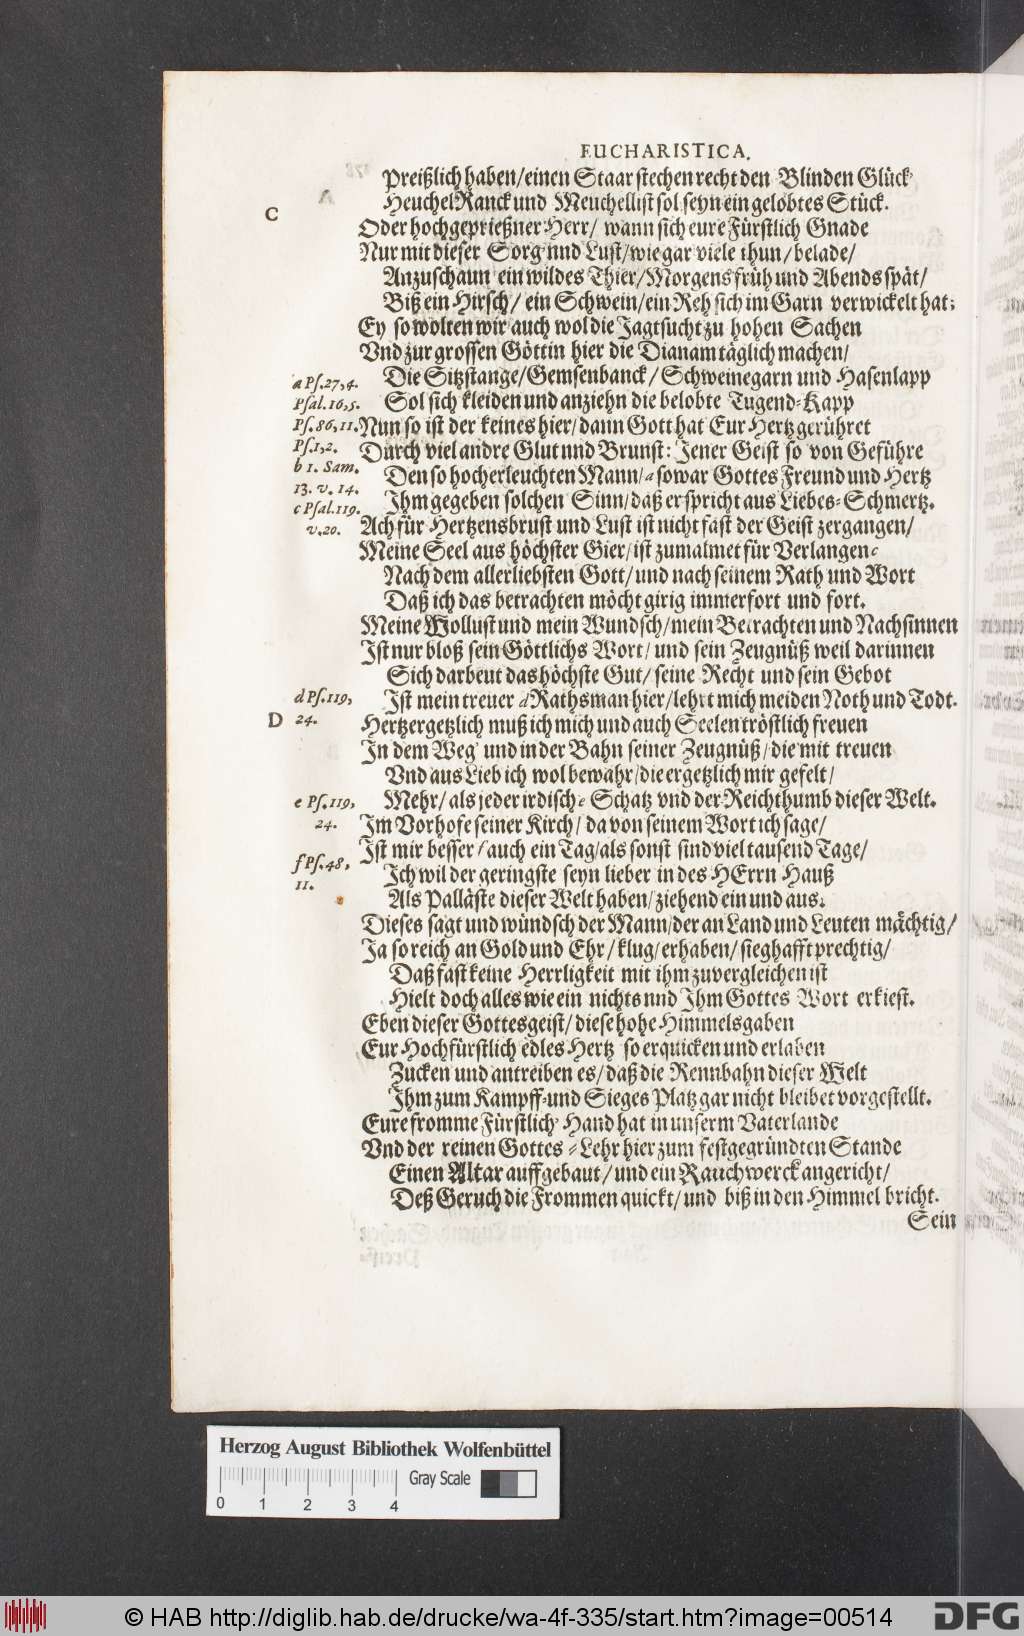 EUCHARISTICA.
Preißlich haben/einen Staar stechen recht den Blinden Glück
Heuchel Ranck und Meuchellist sol seyn ein gelobtes Stück.
C
Oder hochgeprießner Herr/ wann sich eure Fürstlich Gnade
Nur mit dieser Sorg und Lust/wie gar viele thun/belade/
Anzuschaun ein wildes Thier/Morgens früh und Abends spät/
Biß ein Hirsch/ ein Schwein/ein Reh sich im Garn verwickelt hat;
Ey so wolten wir auch wol die Jagtsucht zu hohen Sachen
Vnd zur grossen Göttin hier die Dianam täglich machen/
a Ps.27,4. Die Sitzstange/Gemsenbanck/ Schweinegarn und Hasenlapp
Psal.16,5. Sol sich kleiden und anziehn die belobte Tugend-Kapp
Ps.86,11. Nun so ist der keines hier/dann Gott hat Eur Hertz gerühret
Ps.1,2. Durch viel andre Glut und Brunst: Jener Geist so von Geführe
b 1. Sam. Den so hocherleuchten Mann/a so war Gottes Freund und Hertz
13. v. 14. Ihm gegeben solchen Sinn/daß er spricht aus Liebes-Schmertz.
c Psal.119. v.20. Ach für Hertzensbrust und Lust ist nicht fast der Geist zergangen/
Meine Seel aus höchster Gier/ist zumalmet für Verlangen c
Nach dem allerliebsten Gott/und nach seinem Rath und Wort
Daß ich das betrachten möcht girig immerfort und fort.
Meine Wollust und mein Wundsch/mein Betrachten und Nachsinnen
Ist nur bloß sein Göttlichs Wort/ und sein Zeugnüß weil darinnen
Sich darbeut das höchste Gut/ seine Recht und sein Gebot
d Ps.119, Ist mein treuer d Rathsman hier/lehrt mich meiden Noth und Todt.
D 24. Hertzergetzlich muß ich mich und auch Seelentröstlich freuen
In dem Weg und in der Bahn seiner Zeugnüß/die mit treuen
Vnd aus Lieb ich wol bewahr/die ergetzlich mir gefelt/
e Ps.119, Mehr/als jeder irdisch e Schatz vnd der Reichthumb dieser Welt.
24. Im Vorhofe seiner Kirch/ da von seinem Wort ich sage/
Ist mir besser f auch ein Tag/als sonst sind viel tausend Tage/
f Ps.48, 11. Ich wil der geringste seyn lieber in des HErrn Hauß
Als Palläste dieser Welt haben/ziehend ein und aus.
Dieses sagt und wündsch der Mann/der an Land und Leuten mächtig/
Ja so reich an Gold und Ehr/klug/erhaben/sieghafft prechtig/
Daß fast keine Herrligkeit mit ihm zuvergleichen ist
Hielt doch alles wie ein nichts und Ihm Gottes Wort erkiest.
Eben dieser Gottesgeist/diese hohe Himmelsgaben
Eur Hochfürstlich edles Hertz so erquicken und erlaben
Zucken und antreiben es/daß die Rennbahn dieser Welt
Ihm zum Kampff-und Sieges Platz gar nicht bleibet vorgestellt.
Eure fromme Fürstlich Hand hat in unserm Vaterlande
Vnd der reinen Gottes-Lehr hier zum festgegründten Stande
Einen Altar auffgebaut/ und ein Rauchwerck angericht/
Deß Geruch die Frommen quickt/und biß in den Himmel bricht.
Sein
Herzog August Bibliothek Wolfenbüttel
Gray Scale
0 1 2 3 4
© HAB http://diglib.hab.de/drucke/wa-4f-335/start.htm?image=00514
DFG